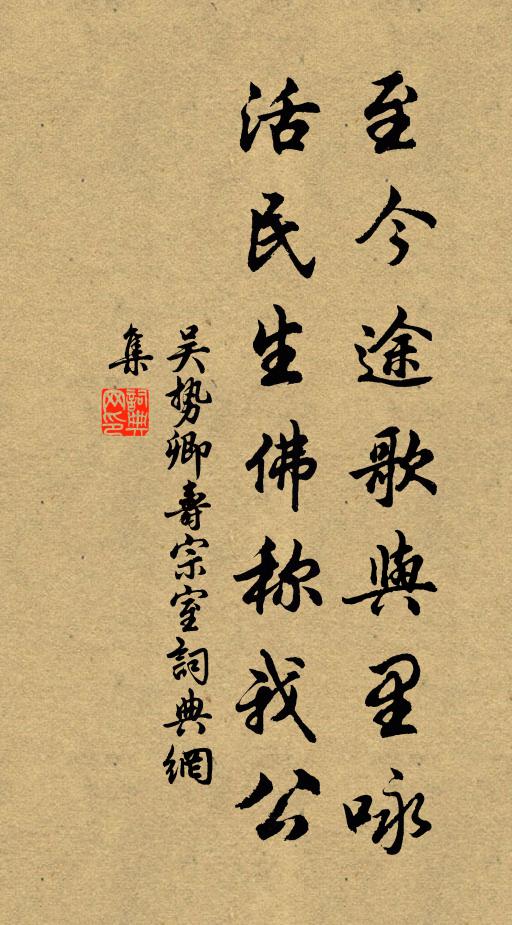 至今途歌與里咏
活民生佛称我公
吴势卿壽宗室詞典網
集
詞典網印